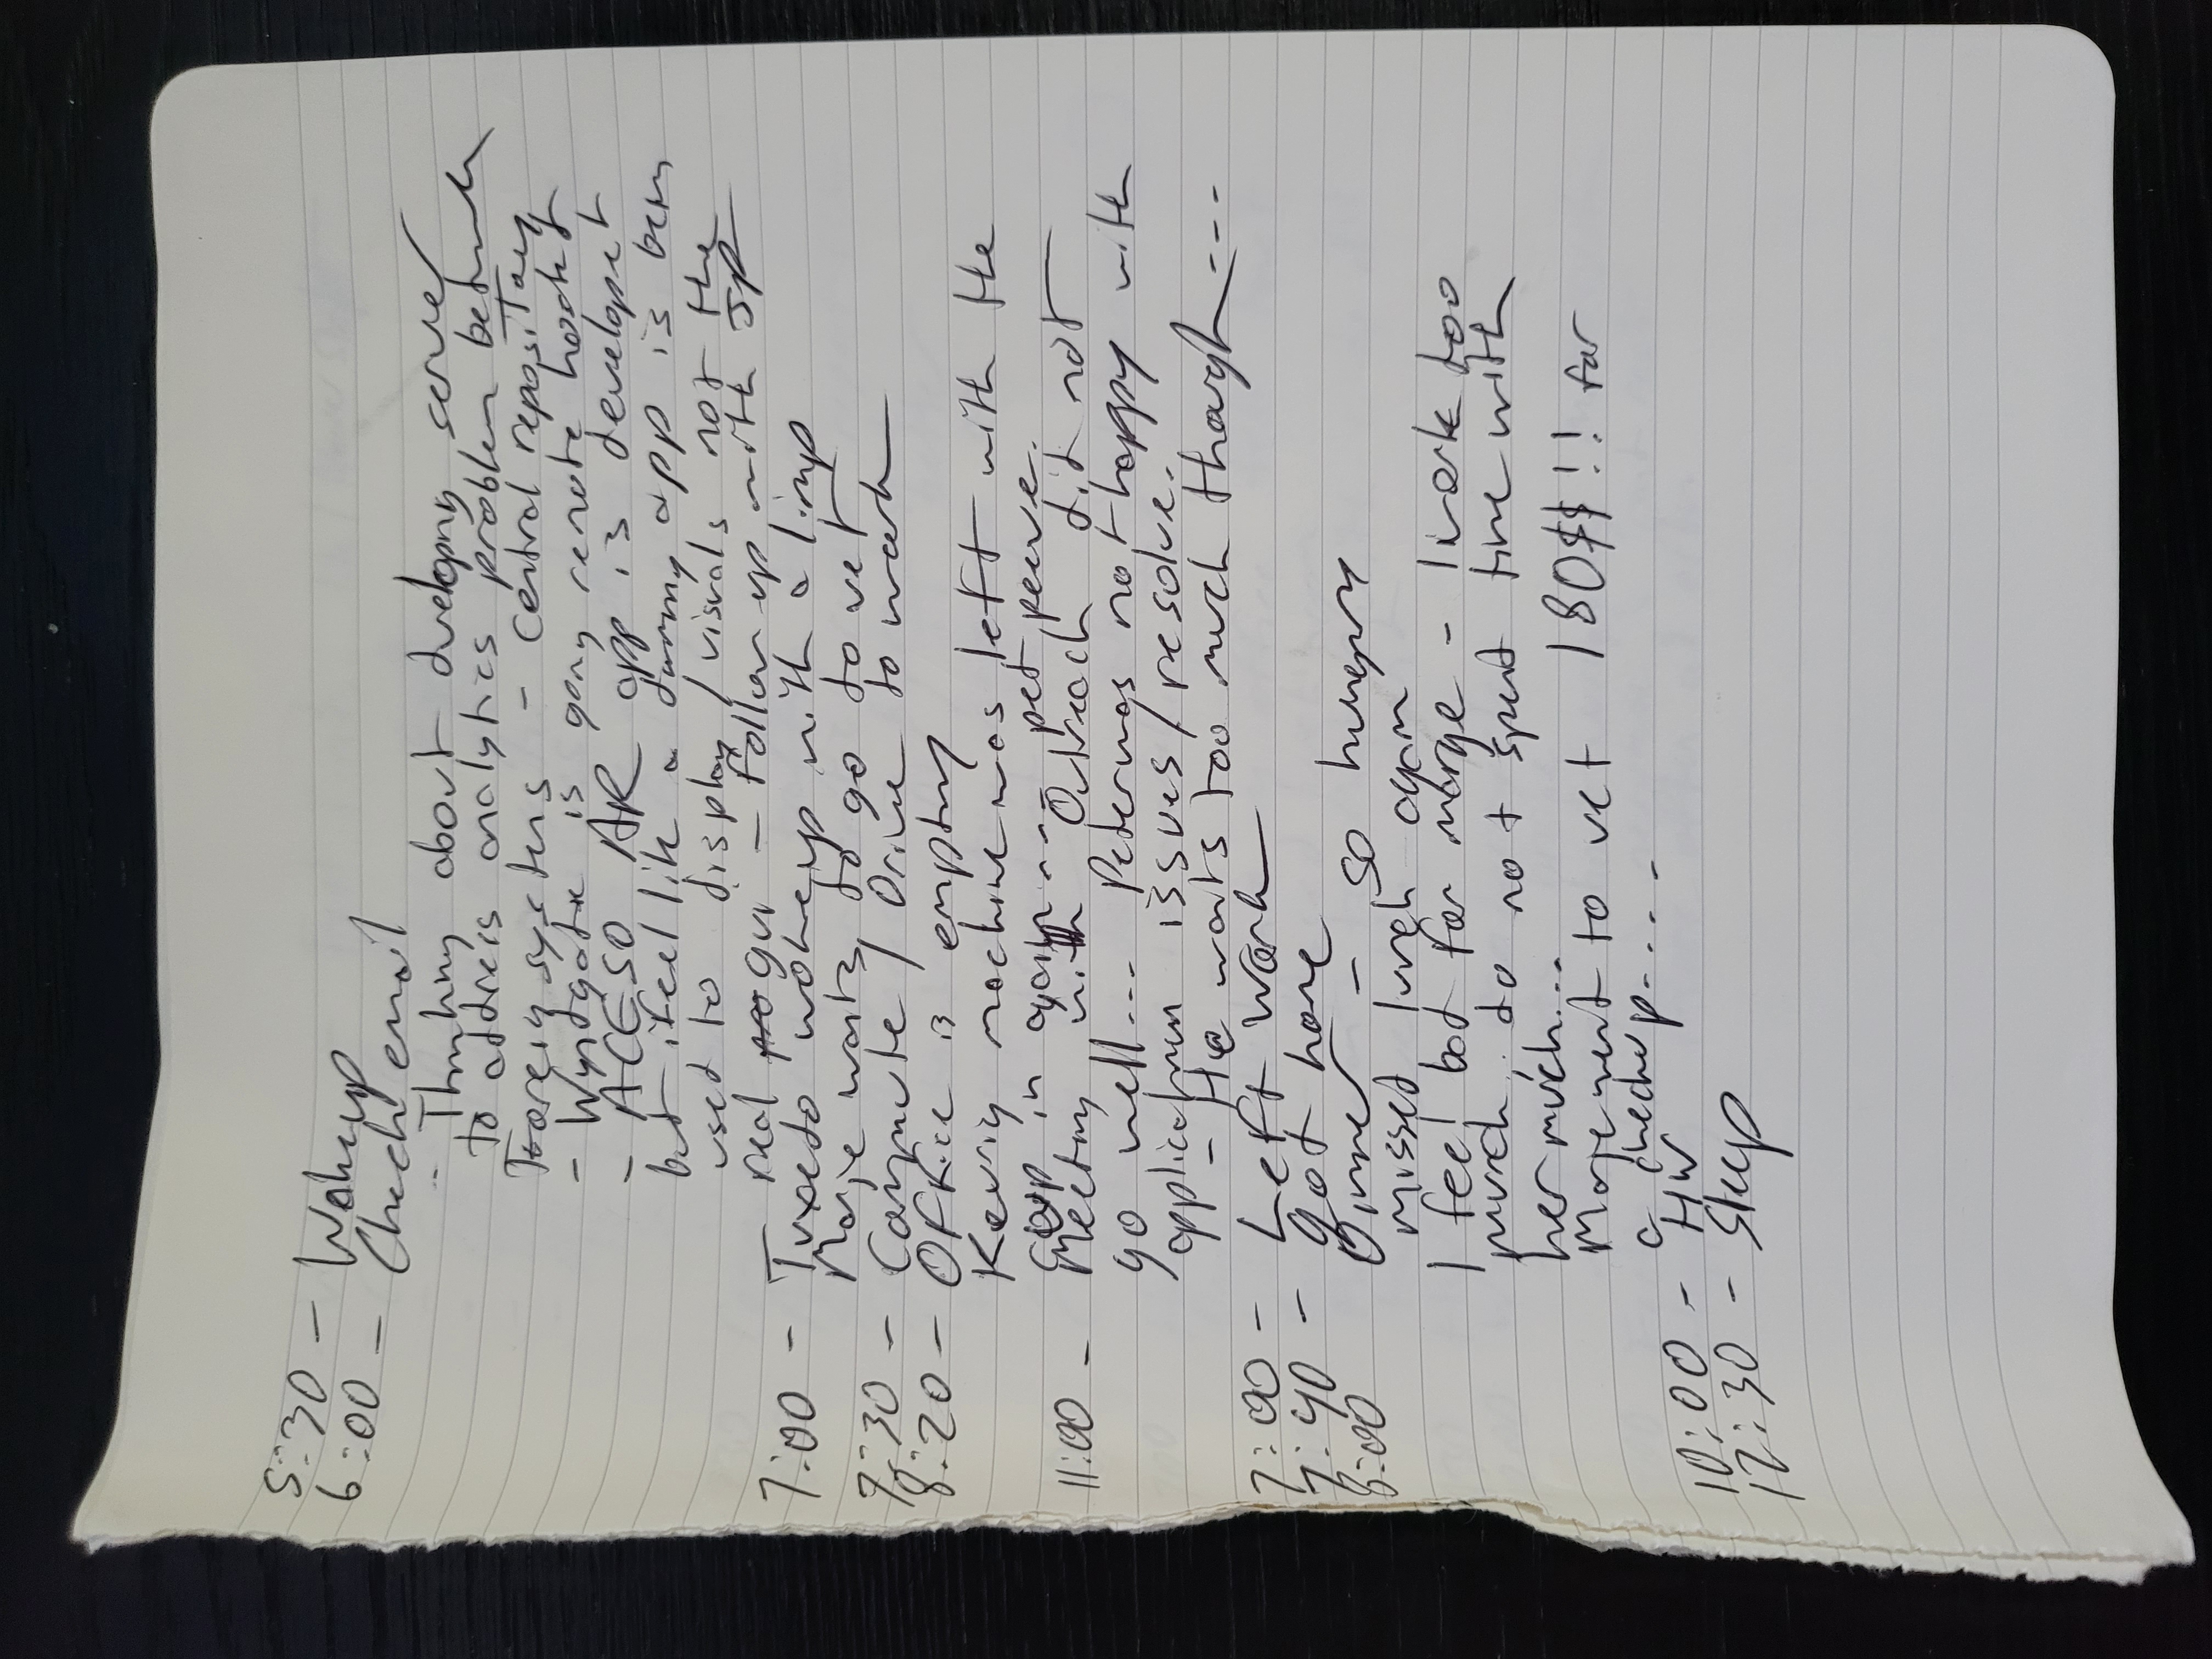 5:30 - Wakeup
6:00 - Check email
- Thinking about developing server
to address analytics problem between
Foreign systems - central repository
- Wyndgate is going remote hooked
- ACESO AR app is developed
but i feel like a dummy app is being
used to display / visuals not the
real gui - Follow up with JP
7:00 - Tuxedo wokeup with a limp
Marje wants to go to vet
7:30 - Commute / Drive to work
8:20 - Office is empty
Keurig machine was left with the
cup in again.... pet peeve.
11:00 - Meeting with Outreach did not
go well... Peter was not happy with
application issues / resolve.
- He wants too much though---
7:00 - Left Work
7:40 - got home
8:00 Dinner - so hungry
missed lunch again
I feel bad for marge - I work too
much, do not spend time with
her much...
Marje went to vet 180$$!! for
a checkup....
10:00 - HW
12:30 - Sleep